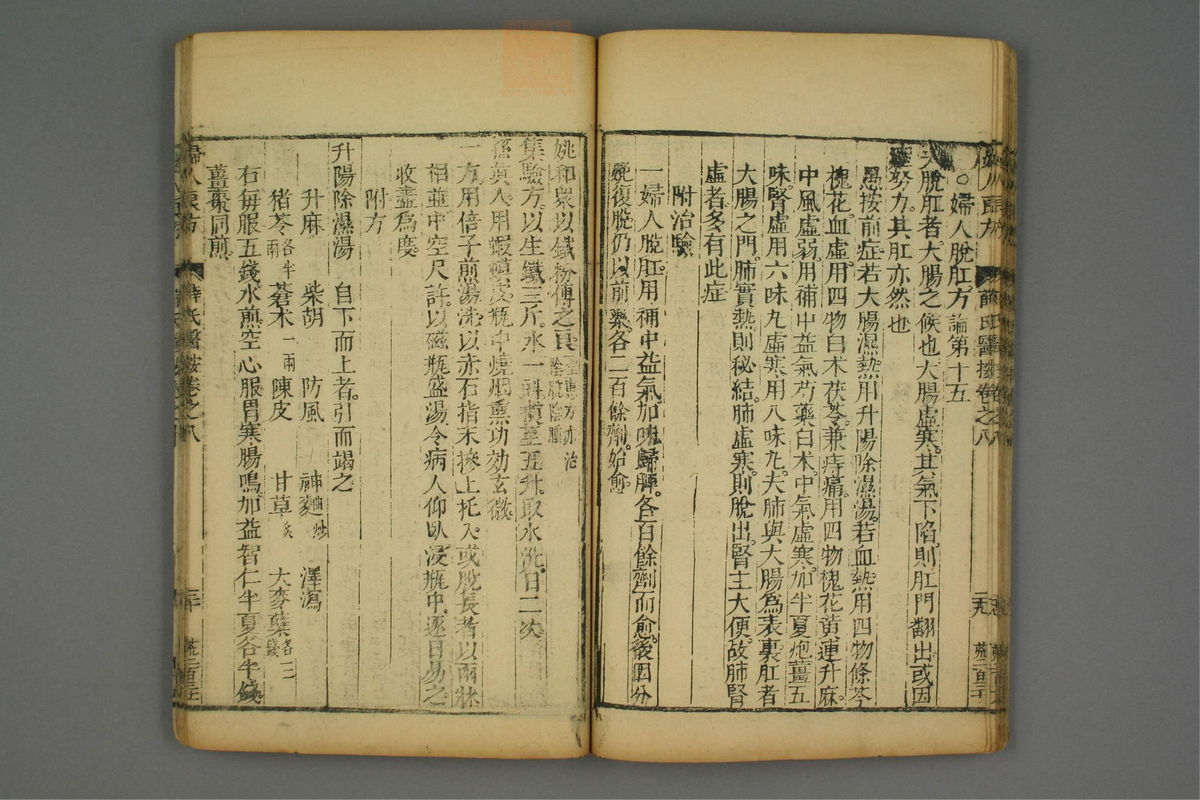 婦人良方 薛氏醫按卷之八
○婦人脫肛方論第十五
夫脫肛者大腸之候也大腸虛寒其氣下陷則肛門翻出或因
努力其肛亦然也
愚按前症若大腸濕熱用升陽除濕湯若血熱用四物條芩
槐花血虛用四物白朮茯苓兼痔痛用四物槐花黃連升麻
中風虛弱用補中益氣芍藥白朮中氣虛寒加半夏炮薑五
味腎虛用六味丸虛寒用八味丸夫肺與大腸為表裏肛者
大腸之門肺實熱則秘結肺虛寒則脫出腎主大便故肺腎
虛者多有此症
附治驗
一婦人脫肛用補中益氣加味歸脾各百餘劑而愈後因分
娩復脫仍以前藥各二百餘劑始愈
姚和眾以鐵粉傅之良 方亦治陰脫陰腫
集驗方以生鐵三斤水一斗煮至五升取水洗日二次
孫真人用蝦蟆皮瓶中燒烟熏功効玄微
一方用倍子煎湯洗以赤石指末摻上托入或脫長者以兩牀
相並中空尺許以磁瓶盛湯令病人仰臥浸瓶中逐日易之
收盡為度
附方
升陽除濕湯 自下而上者引而竭之
升麻 柴胡 防風 神麴炒 澤瀉
猪苓各半兩 蒼朮一兩 陳皮 甘草炙 大麥蘗各三錢
右每服五錢水煎空心服胃寒腸鳴加益智仁半夏各半錢
薑棗同煎
婦人良方 薛氏醫按卷之八